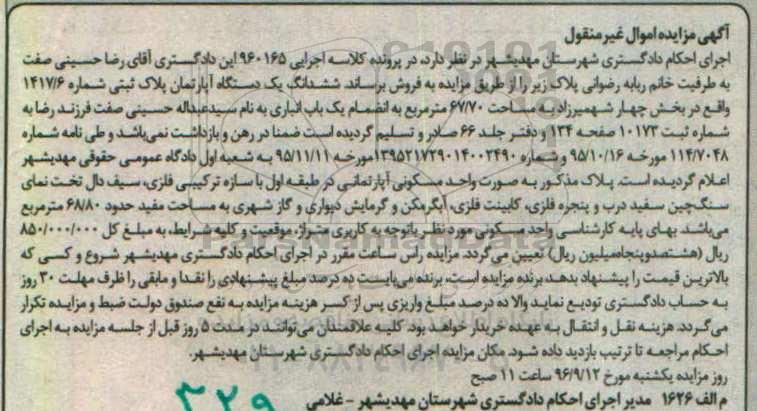 آگهی مزایده اموال غیر منقول
اجرای احکام دادگستری شهرستان مهدیشهر در نظر دارد، در پرونده کلاسه اجرایی ۹۶۰۱۶۵ این دادگستری آقای رضا حسینی صفت
به طرفیت خانم ربابه رضوانی پلاک زیر را از طریق مزایده به فروش برساند. ششدانگ یک دستگاه آپارتمان پلاک ثبتی شماره ۱۴۱۷/۶
واقع در بخش چهار شهمیرزاد به مساحت ۶۷/۷۰ مترمربع به انضمام یک باب انباری به نام سیدعبداله حسینی صفت فرزند رضا به
شماره ثبت ۱۰۱۷۳ صفحه ۱۳۴ و دفتر جلد ۶۶ صادر و تسلیم گردیده است ضمنا در رهن و بازداشت نمی‌باشد و طی نامه شماره
۱۱۴/۷۰۴۸ مورخه ۹۵/۱۰/۱۶ و شماره ۱۳۹۵۲۱۷۲۹۰۱۴۰۰۲۴۹۰ مورخه ۹۵/۱۱/۱۱ به شعبه اول دادگاه عمومی حقوقی مهدیشهر
اعلام گردیده است. پلاک مذکور به صورت واحد مسکونی آپارتمانی در طبقه اول با سازه ترکیبی فلزی، سیف دال تخت نمای
سنگ‌چین سفید درب و پنجره فلزی، کابینت فلزی، آبگرمکن و گرمایش دیواری و گاز شهری به مساحت مفید حدود ۶۸/۸۰ مترمربع
می‌باشد. بهای پایه کارشناسی واحد مسکونی مورد نظر باتوجه به کاربری متراژ، موقعیت و کلیه شرایط، به مبلغ کل ۸۵۰/۰۰۰/۰۰۰
ریال (هشتصدوپنجاه‌میلیون ریال) تعیین می‌گردد. مزایده راس ساعت مقرر در اجرای احکام دادگستری مهدیشهر شروع و کسی که
بالاترین قیمت را پیشنهاد بدهد برنده مزایده است. برنده می‌بایست ده درصد مبلغ پیشنهادی را نقدا و مابقی را ظرف مهلت ۳۰ روز
به حساب دادگستری تودیع نماید والا ده درصد مبلغ واریزی پس از کسر هزینه مزایده به نفع صندوق دولت ضبط و مزایده تکرار
می‌گردد. هزینه نقل و انتقال به عهده خریدار خواهد بود. کلیه علاقمندان می‌توانند در مدت ۵ روز قبل از جلسه مزایده به اجرای
احکام مراجعه تا ترتیب بازدید داده شود. مکان مزایده اجرای احکام دادگستری شهرستان مهدیشهر.
روز مزایده یکشنبه مورخ ۹۶/۹/۱۲ ساعت ۱۱ صبح
م الف ۱۶۲۶ مدیر اجرای احکام دادگستری شهرستان مهدیشهر - غلامی
۳۲۹
ParsNamadData